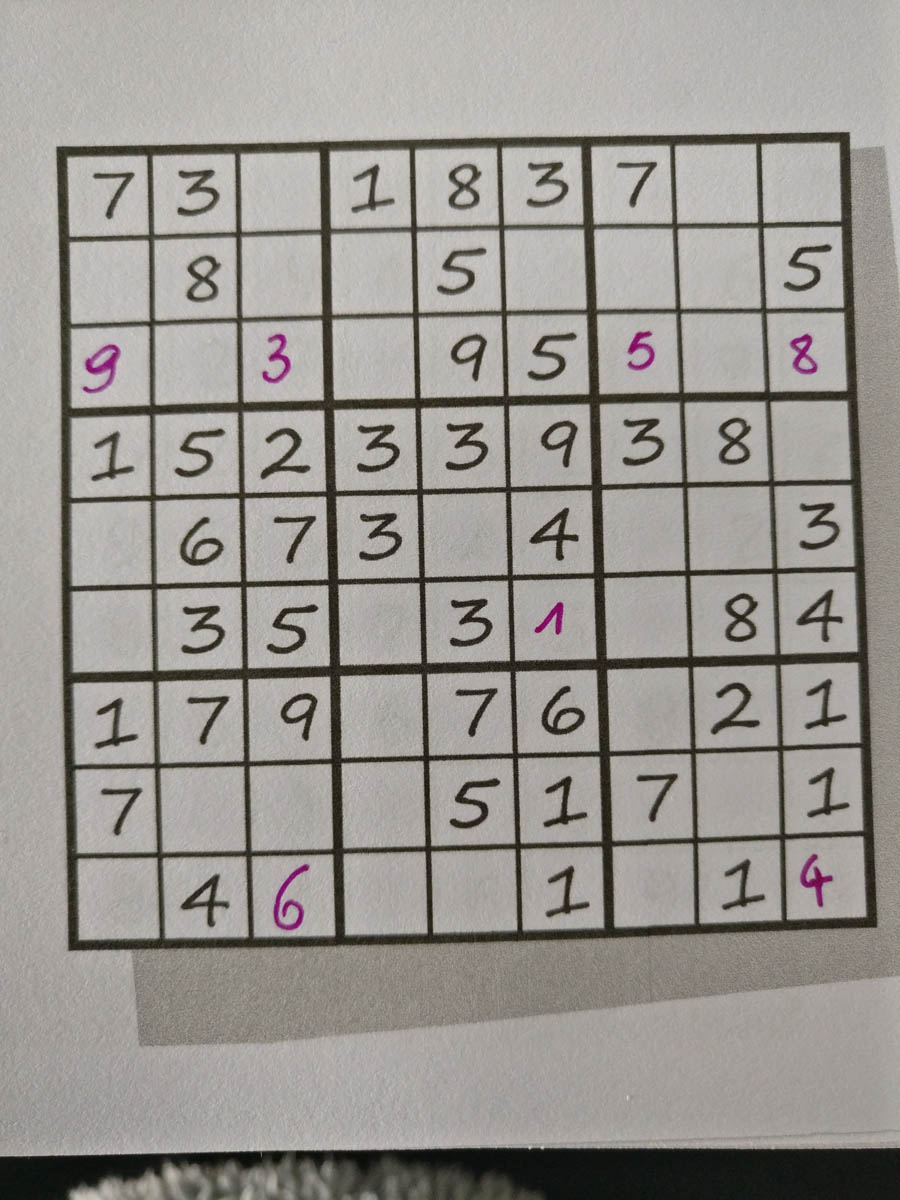 7 3 1 8 3 7
8 5 5
9 3 9 5 5 8
1 5 2 3 3 9 3 8
6 7 3 4 3
3 5 3 1 8 4
1 7 9 7 6 2 1
7 5 1 7 1
4 6 1 1 4